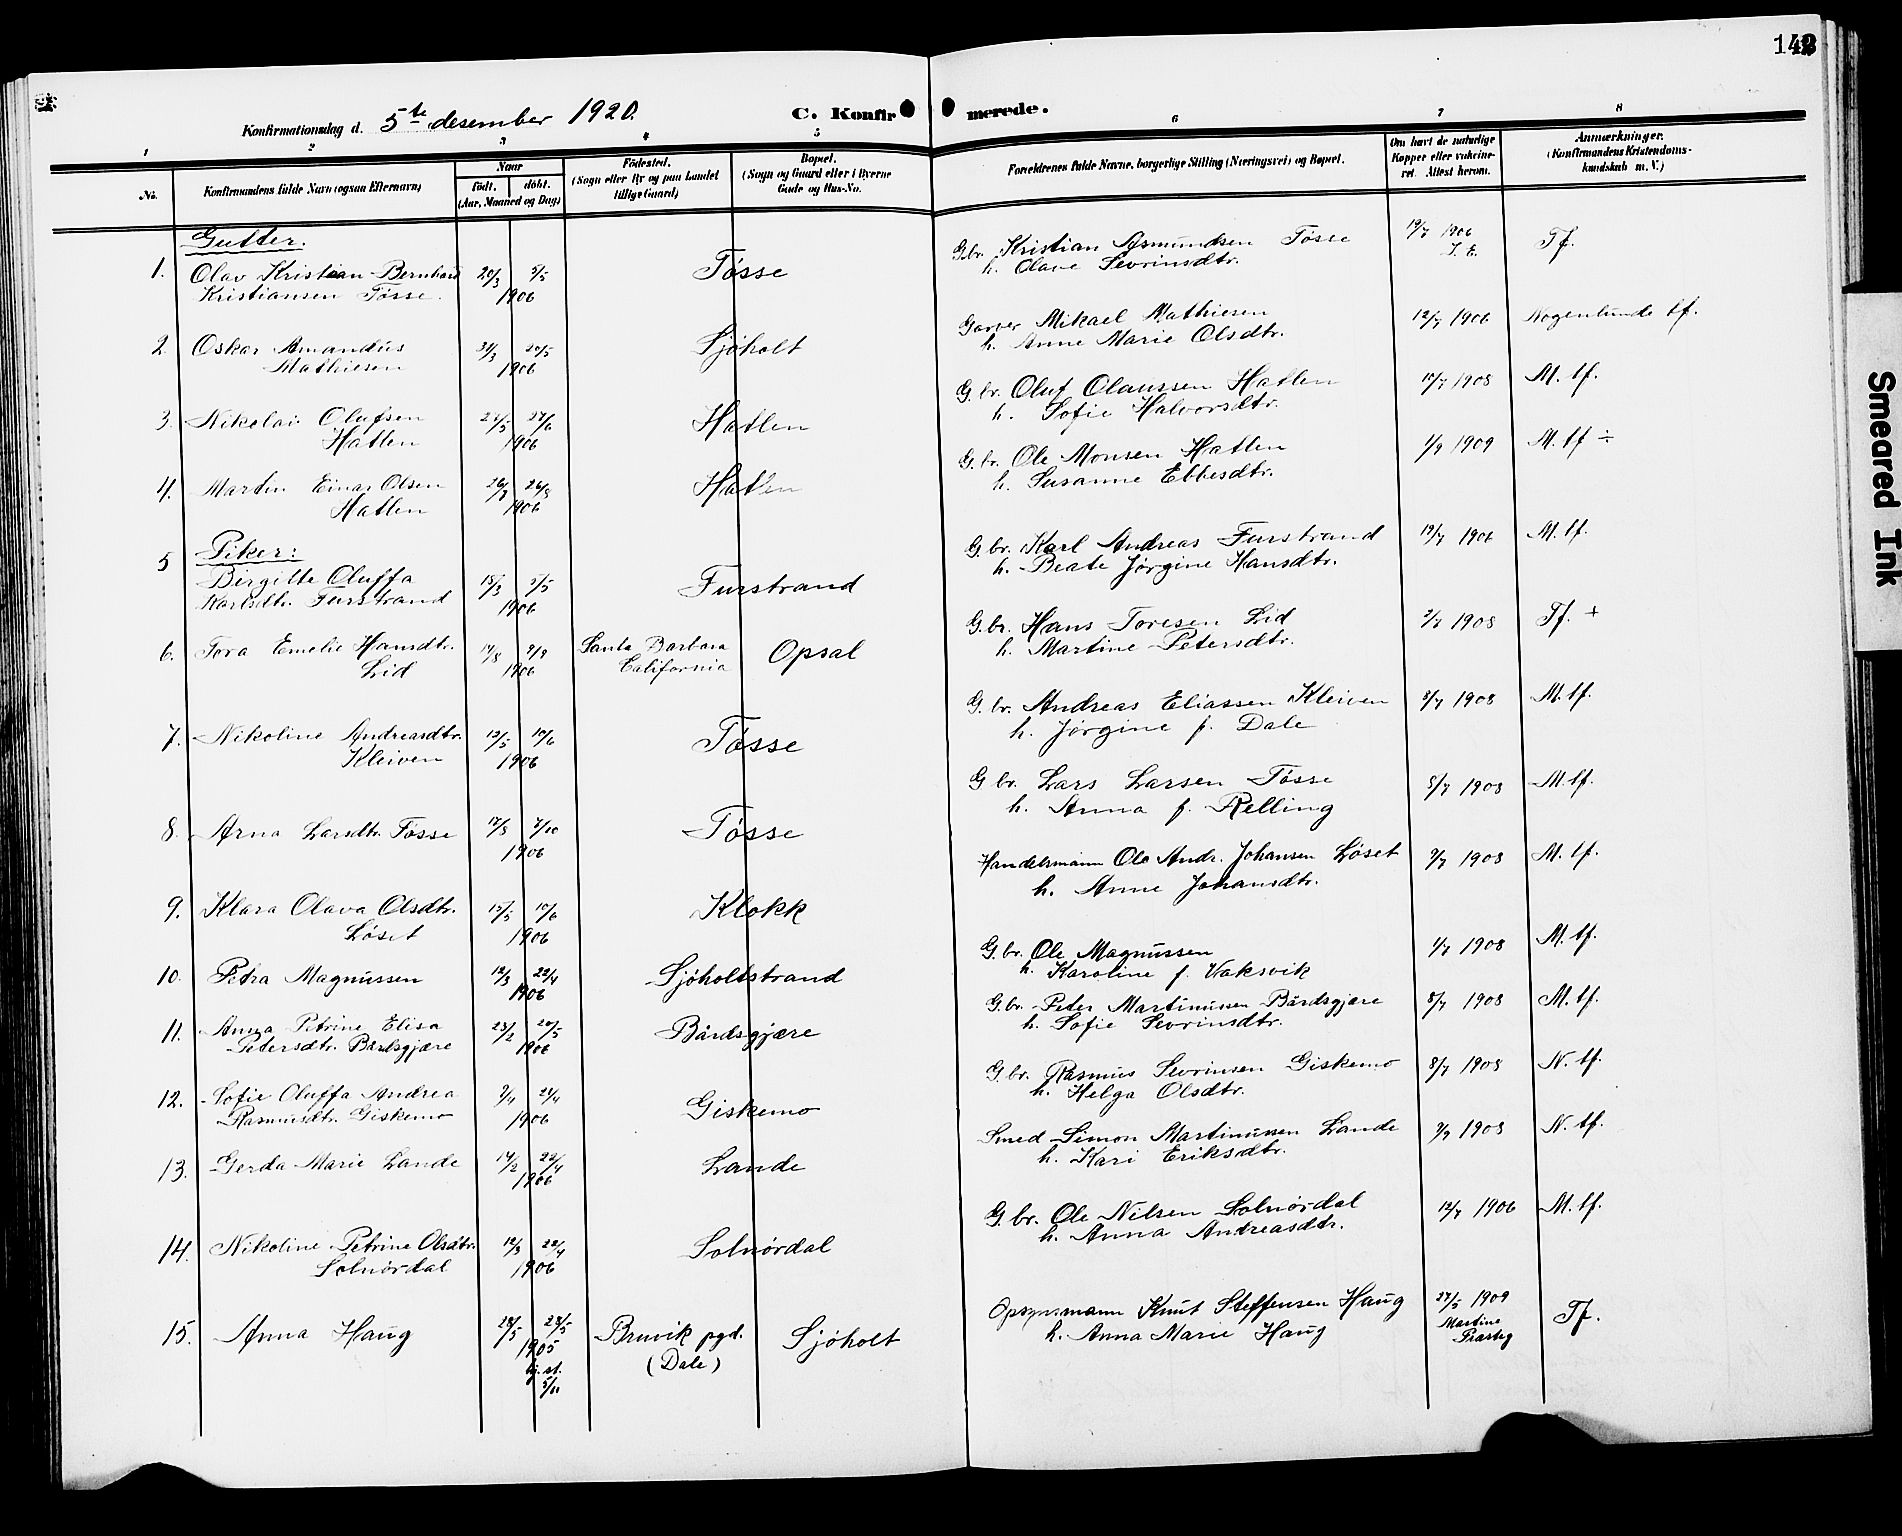 Konfirmationsdag d. 5te desember 1920.
C. Konfirmerede.
1 2 3 4 5 6 7 8
No.
Konfirmandens fulde Navn (ogsaa Efternavn)
Naar
født. døbt.
(Aar, Maaned og Dag)
Fødested.
(Sogn eller By og paa Landet
tillige Gaard)
Bopæl.
(Sogn og Gaard eller i Byerne
Gade og Hus-No.
Forældrenes fulde Navne, borgerlige Stilling (Næringsvei) og Bopæl.
Om havt de naturlige
Kopper eller vakcine-
ret. Attest herom.
Anmærkninger.
(Konfirmandens Kristendoms-
kundskab m. V.)
Gutter.
1. Olav Kristian Bernhard 20/3 Tøsse Gbr. Kristian Asmundsen Tøsse 1906 Tf.
Kristiansen Tøsse. 1906 h. Olave Sevrinsdtr.
2. Oskar Amandus 31/3 20/5 Sjøholt Garver Mikael Mathiesen 12/7 1906 Nogenlunde tf.
Mathiesen 1906 h. Anne Marie Olsdtr.
3. Nikolai Olufsen 24/6 Hatlen G.br. Oluf Olaussen Hatlen 10/7 1908 M. tf.
Hatlen 1906 h. Sofie Halvorsdtr.
4. Martin Einar Olsen 26/8 Hatlen G.br. Ole Monsen Hatlen 1/9 1909 M. tf ÷
Hatlen 1906 h. Susanne Ebbesdtr.
Piker:
5 Birgitte Oluffa 18/3 Furstrand G.br. Karl Andreas Furstrand 1906 M. tf.
Karlsdtr. Furstrand 1906 h. Beate Jørgine Hansdtr.
6. Tora Emelie Hansdtr. 9/9 Santa Barbara Opsal G.br. Hans Toresen Lid 1908 Tf. +
Lid 1906 California h. Martine Petersdtr.
7. Nikoline Andreasdtr. 12/5 10/6 Tøsse G.br. Andreas Eliassen Kleiven 8/7 1908 M. tf.
Kleiven 1906 h. Jørgine f. Dale
8. Arna Larsdtr. Tøsse 7/10 Tøsse G.br. Lars Larsen Tøsse 8/7 1908 M. tf.
1906 h. Anna f. Relling
9. Klara Olava Olsdtr. 15/5 10/6 Klokk Handelsmann Ole Andr. Johansen Løset 9/7 1908 M. tf.
Løset 1906 h. Anne Johansdtr.
10. Petra Magnussen 12/3 22/4 Sjøholtstrand G.br. Ole Magnussen 1908 M. tf.
1906 h. Karoline f. Vaksvik
11. Anna Petrine Elisa 23/2 20/5 Bårdsgjære G.br. Peter Martinussen Bårdsgjære 8/7 1908 M. tf.
Petersdtr. Bårdsgjære 1906 h. Sofie Sevrinsdtr.
12. Sofie Oluffa Andrea Giskemo G.br. Rasmus Sevrinsen Giskemo 8/7 1908 N. tf.
Rasmusdtr. Giskemo 1906 h. Helga Olsdtr.
13. Gerda Marie Lande 14/2 22/4 Lande Smed Simon Martinussen Lande 9/7 1908 N. tf.
1906 h. Kari Eriksdtr.
14. Nikoline Petrine Olsdtr. 12/3 22/4 Solnørdal G.br. Ole Nilsen Solnørdal 12/7 1906 M. tf.
Solnørdal 1906 h. Anna Andreasdtr.
15. Anna Haug 28/5 28/5 Bruvik pgd. Sjøholt Opsynsmann Knut Steffensen Haug 27/5 1909 Tf.
1905 (Dale) h. Anna Marie Haug Martine
hj. st.
5/11
Smeared Ink